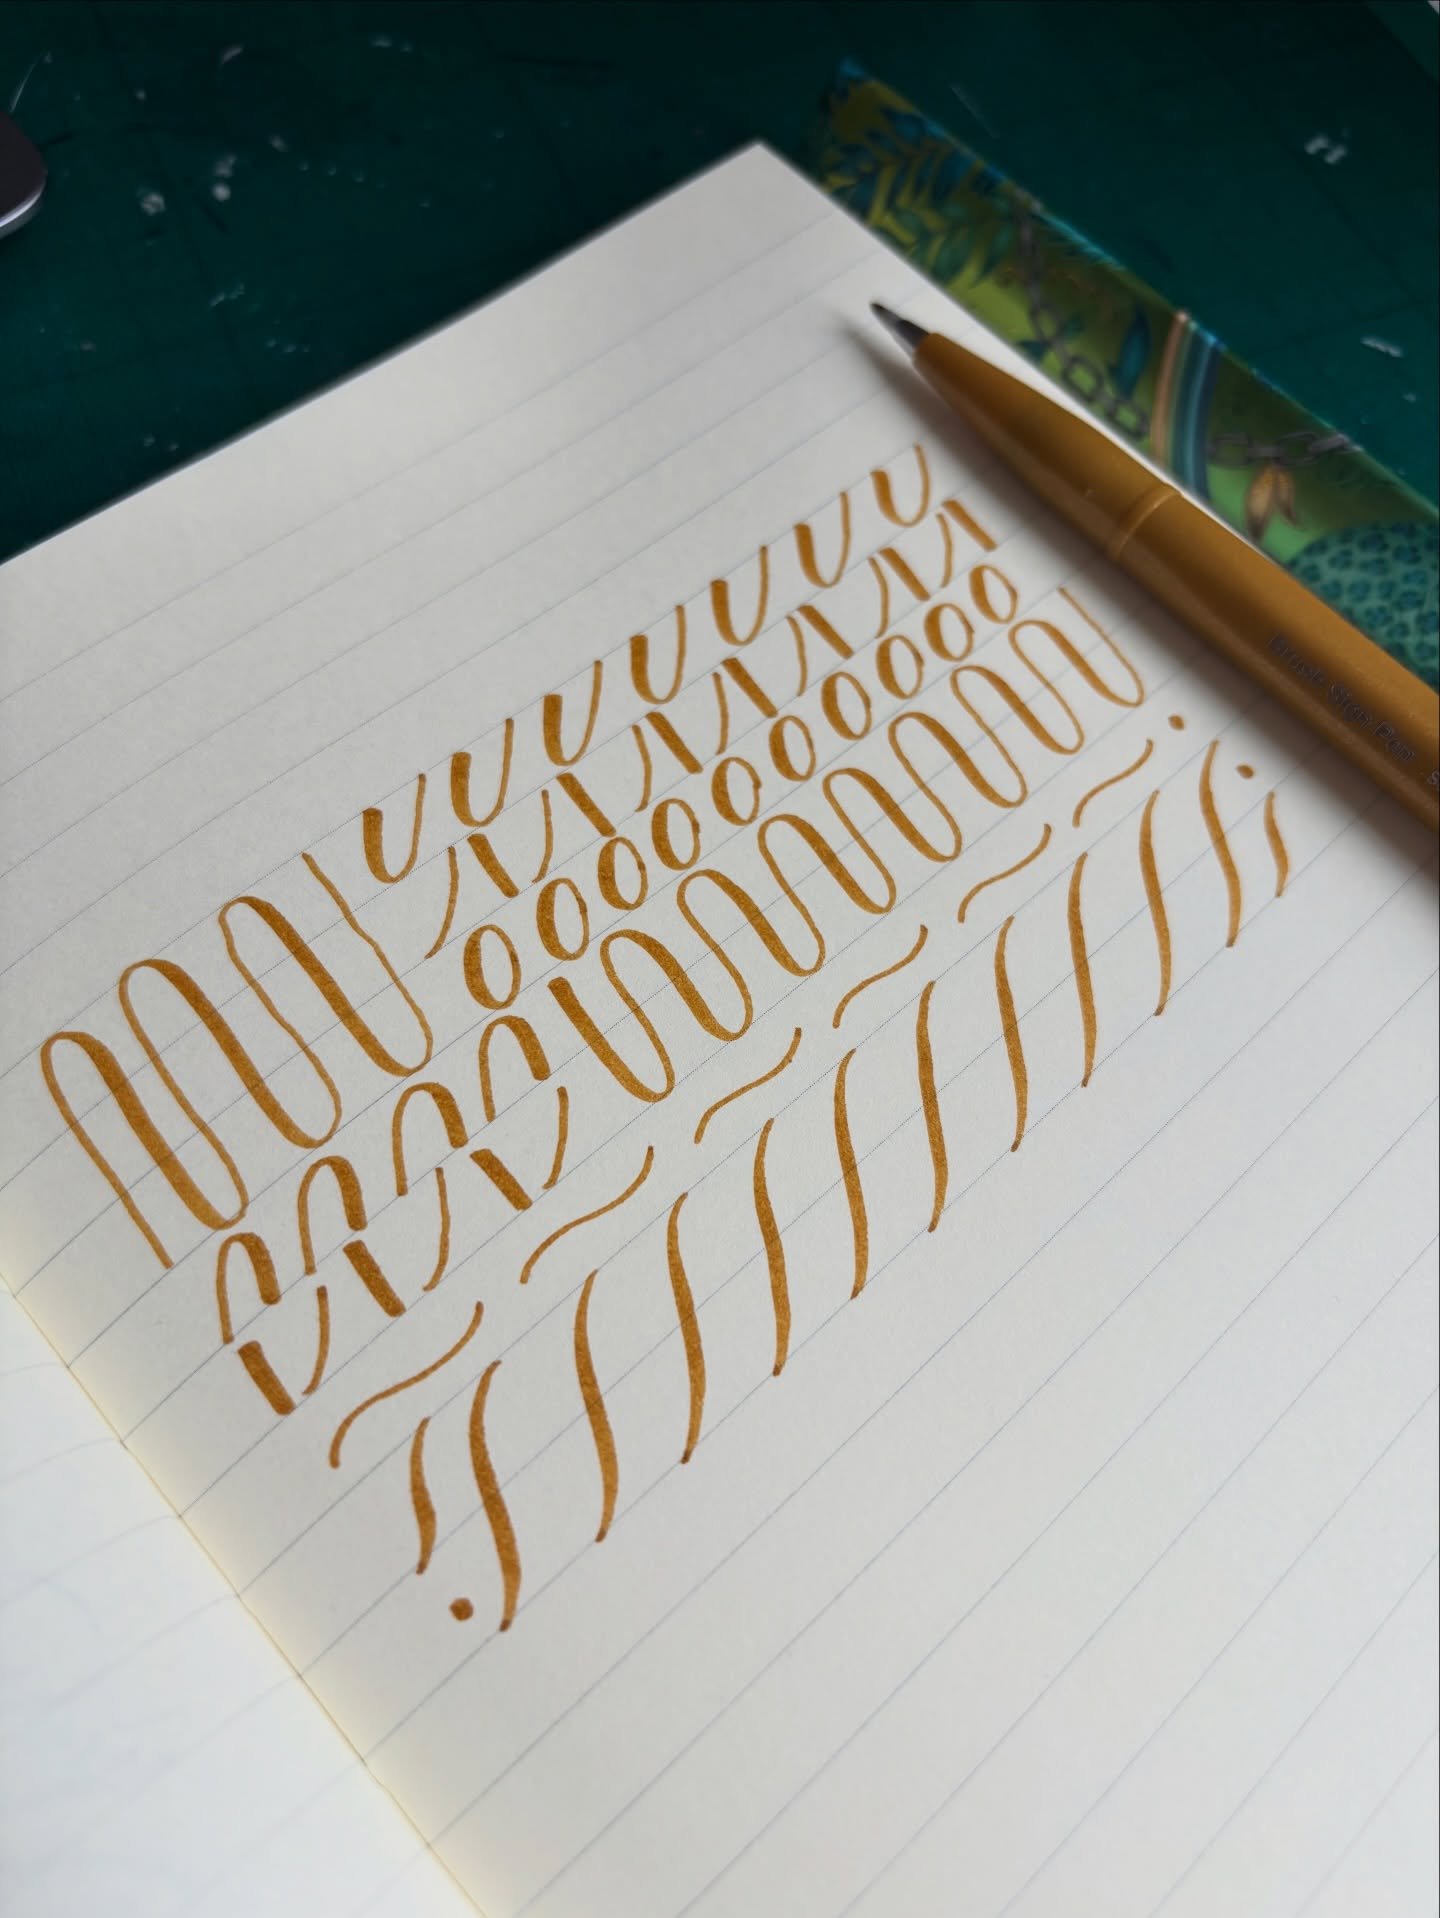 Brush Sign Pen